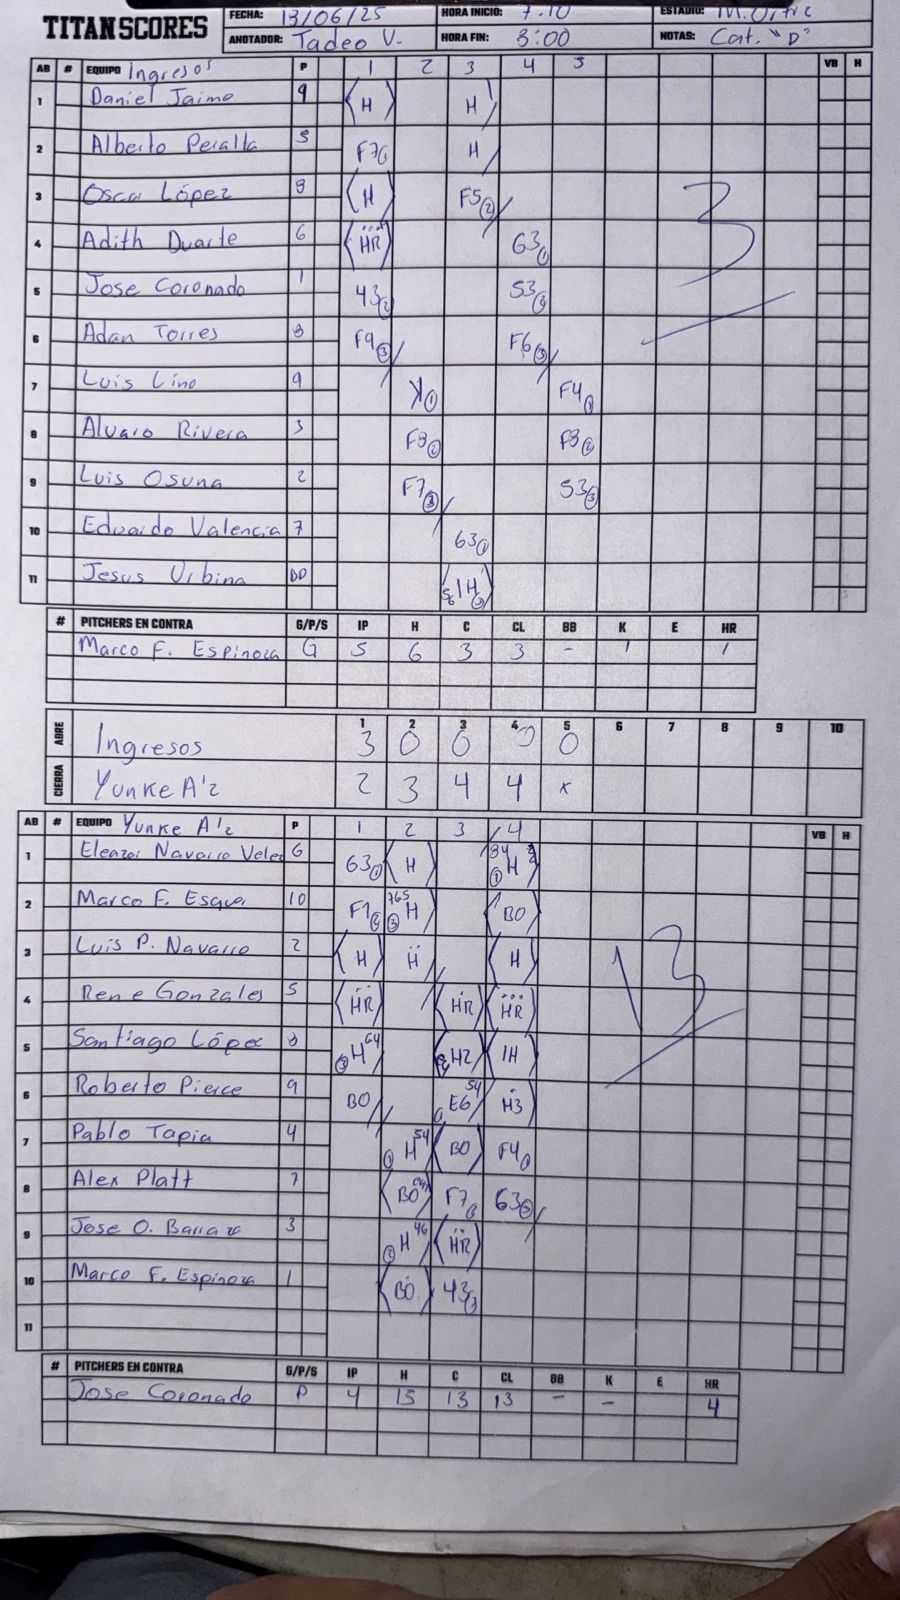 TITANSCORES
FECHA: 13/06/25 HORA INICIO: 7:10 ESTADIO:
ANOTADOR: Tadeo V. HORA FIN: 8:00 NOTAS: Cat. "D"
AB # EQUIPO Ingresos P 1 2 3 4 5 VB H
1 Daniel Jaime 9 H H
2 Alberto Peralta 5 F7 1 H
3 Oscar López 8 H F5 2
4 Adith Duarte 6 HR 63 1
5 Jose Coronado 1 43 2 53 2
6 Adan Torres 8 F9 3 F6 3
7 Luis Lino 9 K 1 F4 1
8 Alvaro Rivera 3 F8 2 F8 2
9 Luis Osuna 2 F7 3 53 3
10 Eduardo Valencia 7 63 1
11 Jesus Urbina BD 1H
# PITCHERS EN CONTRA G/P/S IP H C CL BB K E HR
Marco F. Espinoza G 5 6 3 3 - 1 1
ABRE 1 2 3 4 5 6 7 8 9 10
Ingresos 3 0 0 0 0
CIERRA Yunke A'z 2 3 4 4 x
3
AB # EQUIPO Yunke A'z P 1 2 3 4 VB H
1 Eleazar Navarro Velez 6 63 1 H 84 1 H
2 Marco F. 10 F7 2 765 3 H BO
3 Luis P. Navarro 2 H H H
4 Rene Gonzales 5 HR HR HR
5 Santiago López 8 3 H 64 H2 1H
6 Roberto Pierce 9 BO E6 54 H3
7 Pablo Tapia 4 1 H 54 BO F4 1
8 Alex Platt 7 BO F7 63
9 Jose O. Barraza 3 2 H 46 HR
10 Marco F. Espinoza 1 BO 43 3
11
13
# PITCHERS EN CONTRA G/P/S IP H C CL BB K E HR
Jose Coronado P 4 15 13 13 - - 4